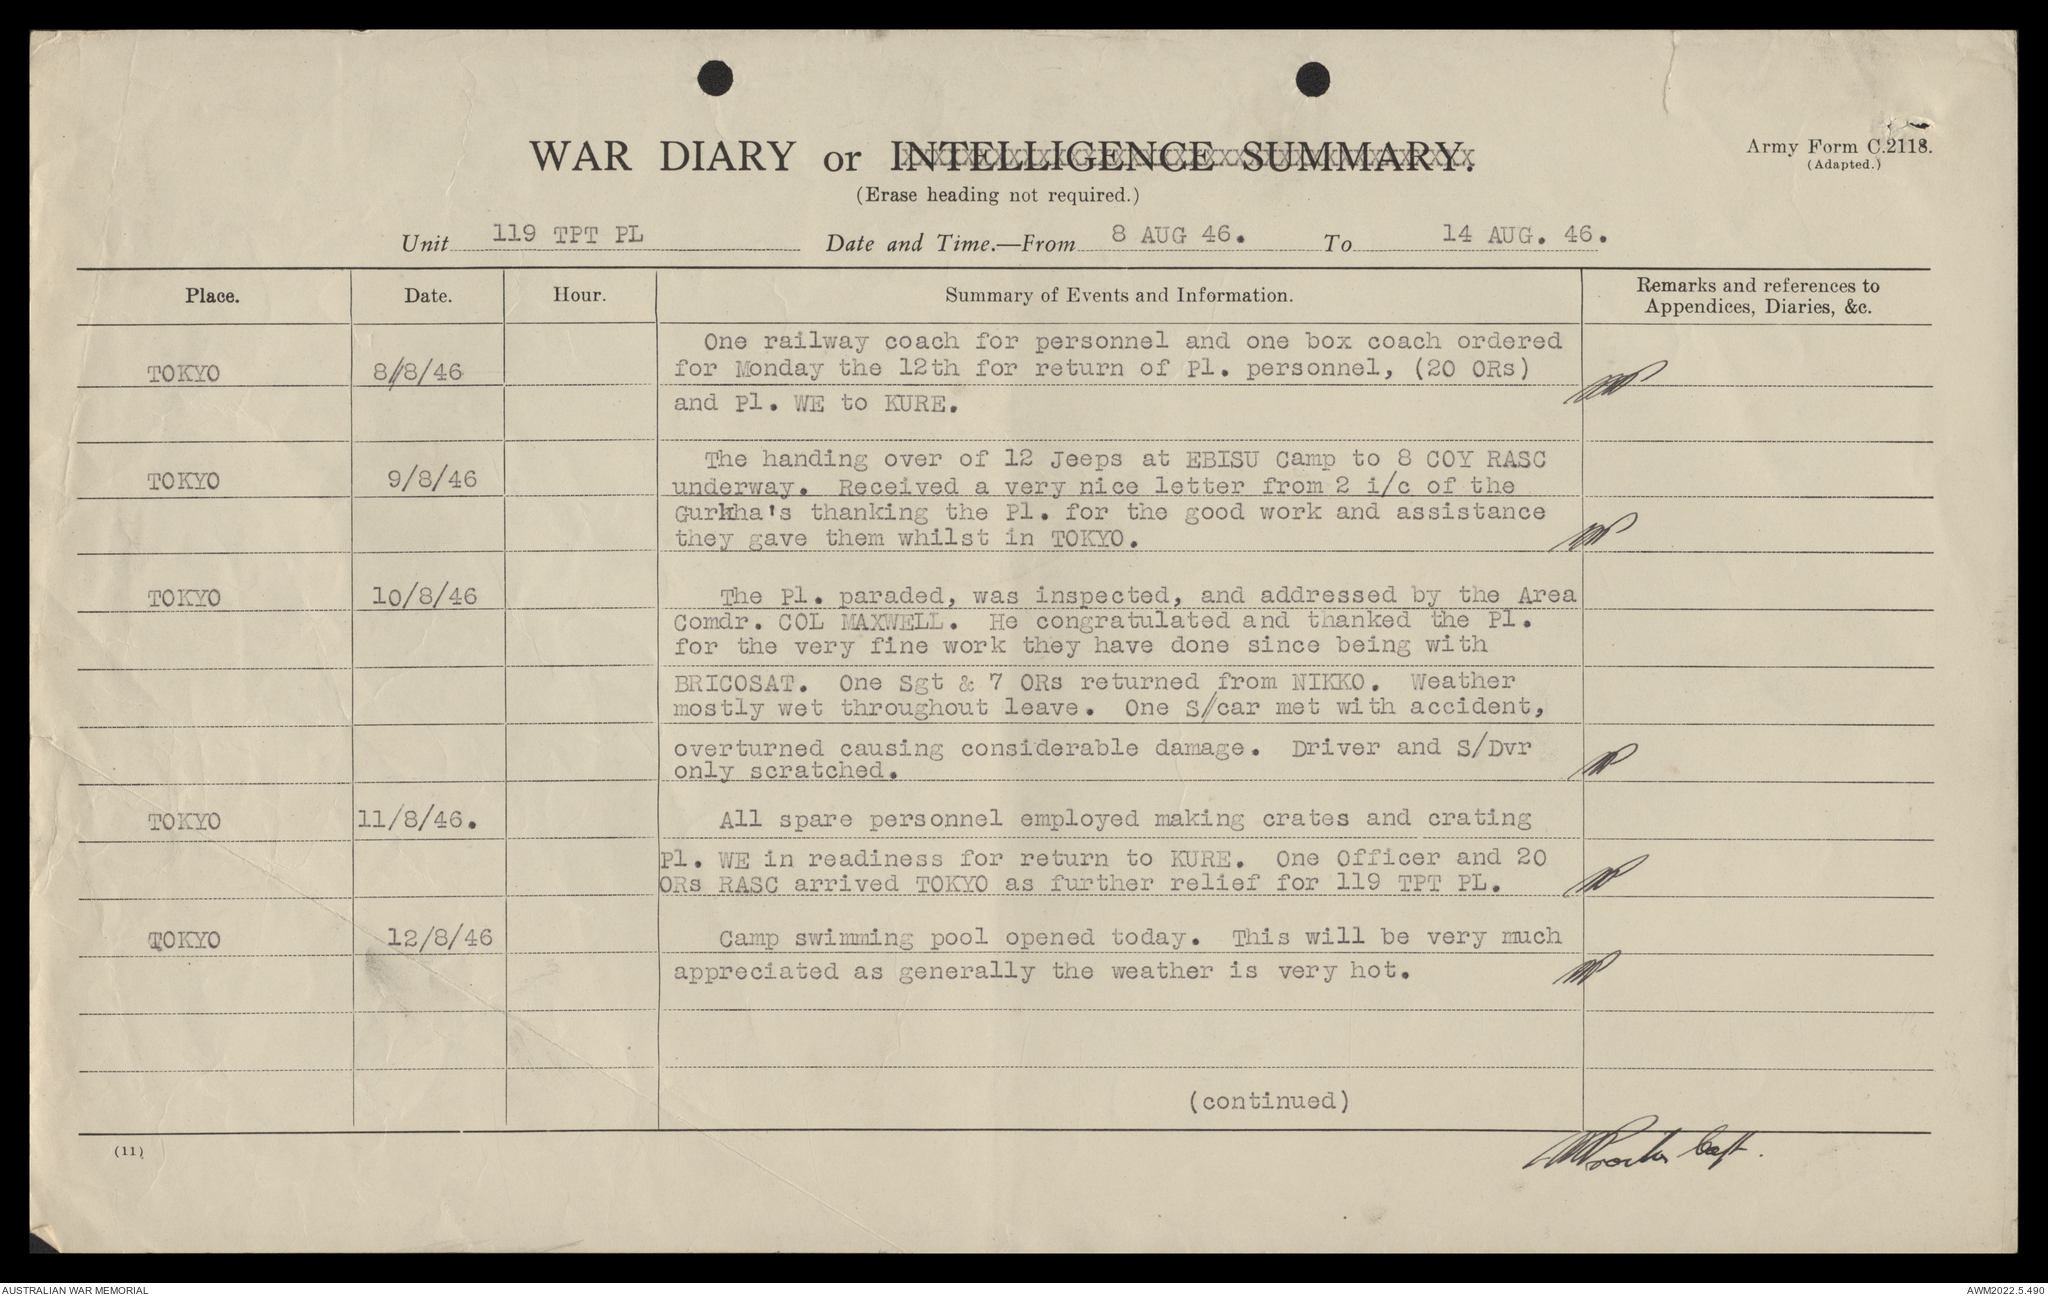 WAR DIARY or INTELLIGENCE SUMMARY.
Army Form C.2118.
(Adapted.)
(Erase heading not required.)
Unit 119 TPT PL Date and Time.—From 8 AUG 46. To 14 AUG. 46.
Place. Date. Hour. Summary of Events and Information. Remarks and references to Appendices, Diaries, &c.
One railway coach for personnel and one box coach ordered
TOKYO 8/8/46 for Monday the 12th for return of Pl. personnel, (20 ORs)
and Pl. WE to KURE.
The handing over of 12 Jeeps at EBISU Camp to 8 COY RASC
TOKYO 9/8/46 underway. Received a very nice letter from 2 i/c of the
Gurkha's thanking the Pl. for the good work and assistance
they gave them whilst in TOKYO.
TOKYO 10/8/46 The Pl. paraded, was inspected, and addressed by the Area
Comdr. COL MAXWELL. He congratulated and thanked the Pl.
for the very fine work they have done since being with
BRICOSAT. One Sgt & 7 ORs returned from NIKKO. Weather
mostly wet throughout leave. One S/car met with accident,
overturned causing considerable damage. Driver and S/Dvr
only scratched.
TOKYO 11/8/46. All spare personnel employed making crates and crating
Pl. WE in readiness for return to KURE. One Officer and 20
ORs RASC arrived TOKYO as further relief for 119 TPT PL.
TOKYO 12/8/46 Camp swimming pool opened today. This will be very much
appreciated as generally the weather is very hot.
(continued)
(11)
Capt.
AUSTRALIAN WAR MEMORIAL
AWM2022.5.490